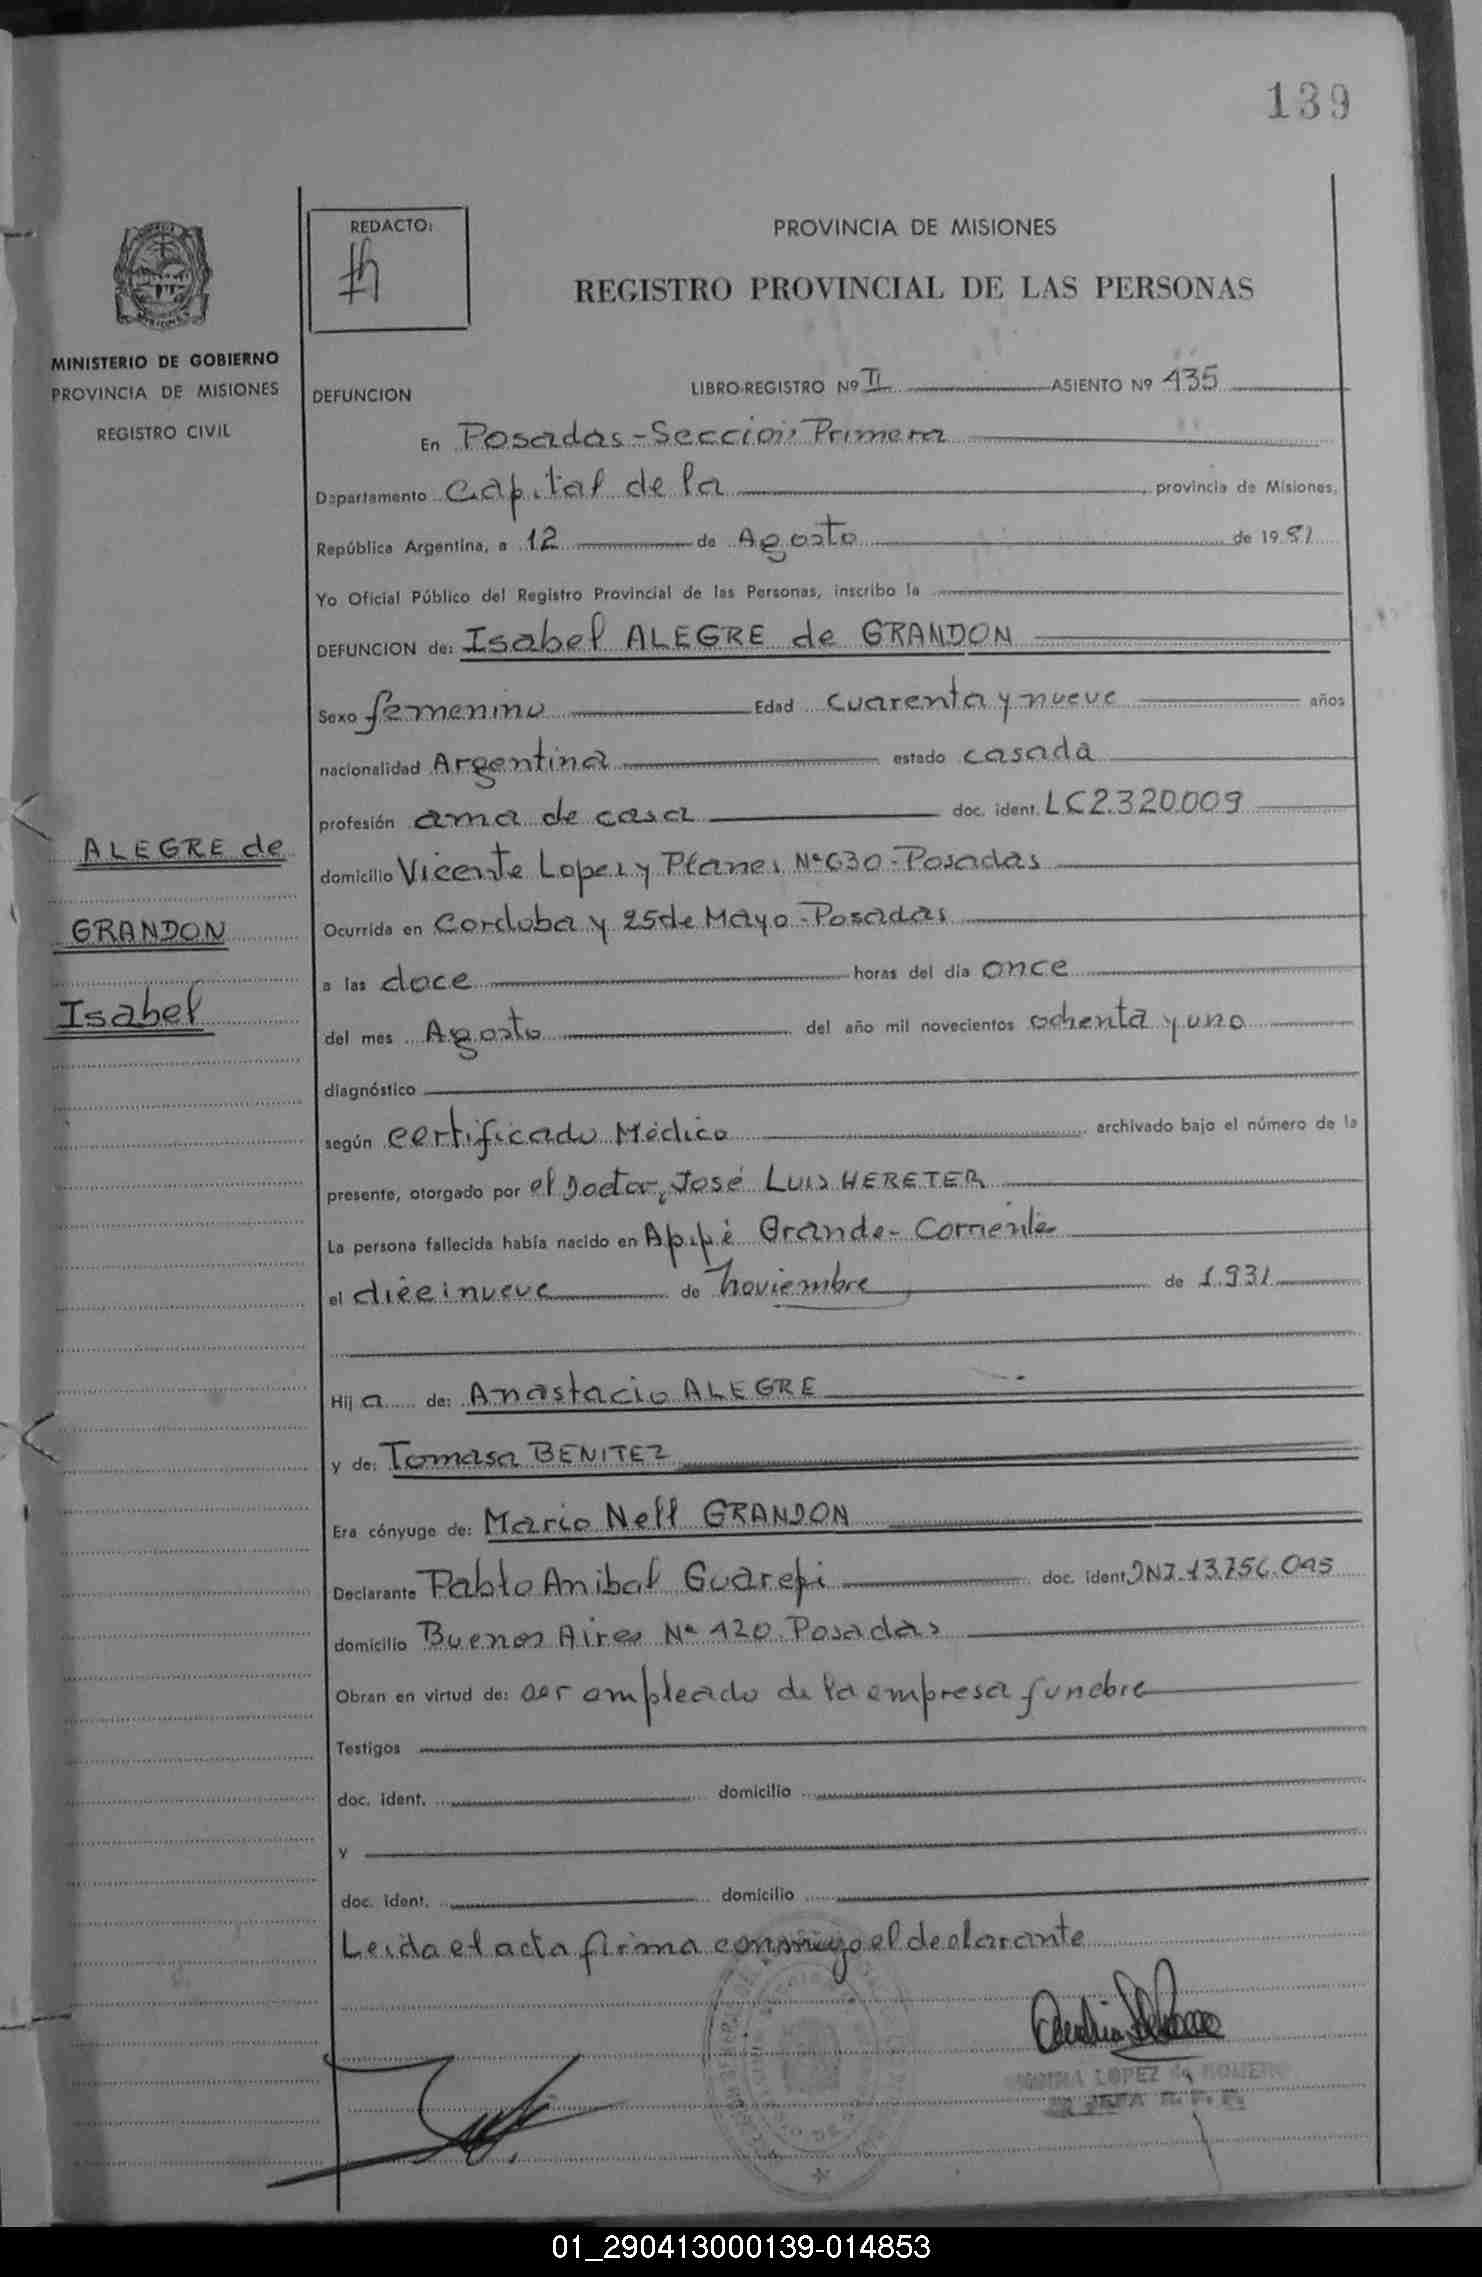 139
REDACTO:
PROVINCIA DE MISIONES
REGISTRO PROVINCIAL DE LAS PERSONAS
MINISTERIO DE GOBIERNO
PROVINCIA DE MISIONES
REGISTRO CIVIL
DEFUNCION LIBRO-REGISTRO Nº II ASIENTO Nº 435
En Posadas-Sección Primera
Departamento Capital de la , provincia de Misiones,
República Argentina, a 12 de Agosto de 1981
Yo Oficial Público del Registro Provincial de las Personas, inscribo la
DEFUNCION de: Isabel ALEGRE de GRANDON
Sexo femenino Edad cuarenta y nueve años
nacionalidad Argentina estado casada
profesión ama de casa doc. ident. LC2.320.009
ALEGRE de
GRANDON
Isabel
domicilio Vicente Lopez y Planes Nº630-Posadas
Ocurrida en Cordoba y 25 de Mayo-Posadas
a las doce horas del día once
del mes Agosto del año mil novecientos ochenta y uno
diagnóstico
según certificado Médico archivado bajo el número de la
presente, otorgado por el Doctor, José Luis HERETER
La persona fallecida había nacido en Apipé Grande-Corrientes
el diecinueve de noviembre de 1.931
Hij a de: Anastacio ALEGRE
y de: Tomasa BENITEZ
Era cónyuge de: Mario Nell GRANDON
Declarante Pablo Anibal Guarepi doc. ident. DNI.13.756.045
domicilio Buenos Aires Nº 120 Posadas
Obran en virtud de: ser empleado de la empresa funebre
Testigos
doc. ident. domicilio
y
doc. ident. domicilio
Leida el acta firma conmigo el declarante
LOPEZ de ROMERO
JEFA
01_290413000139-014853